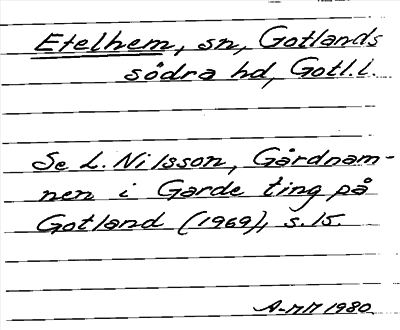 Etelhem, sn, Gotlands
södra hd, Gotl.l.
Se L. Nilsson, Gårdnam-
nen i Garde ting på
Gotland (1969), s. 15.
A-MM 1980